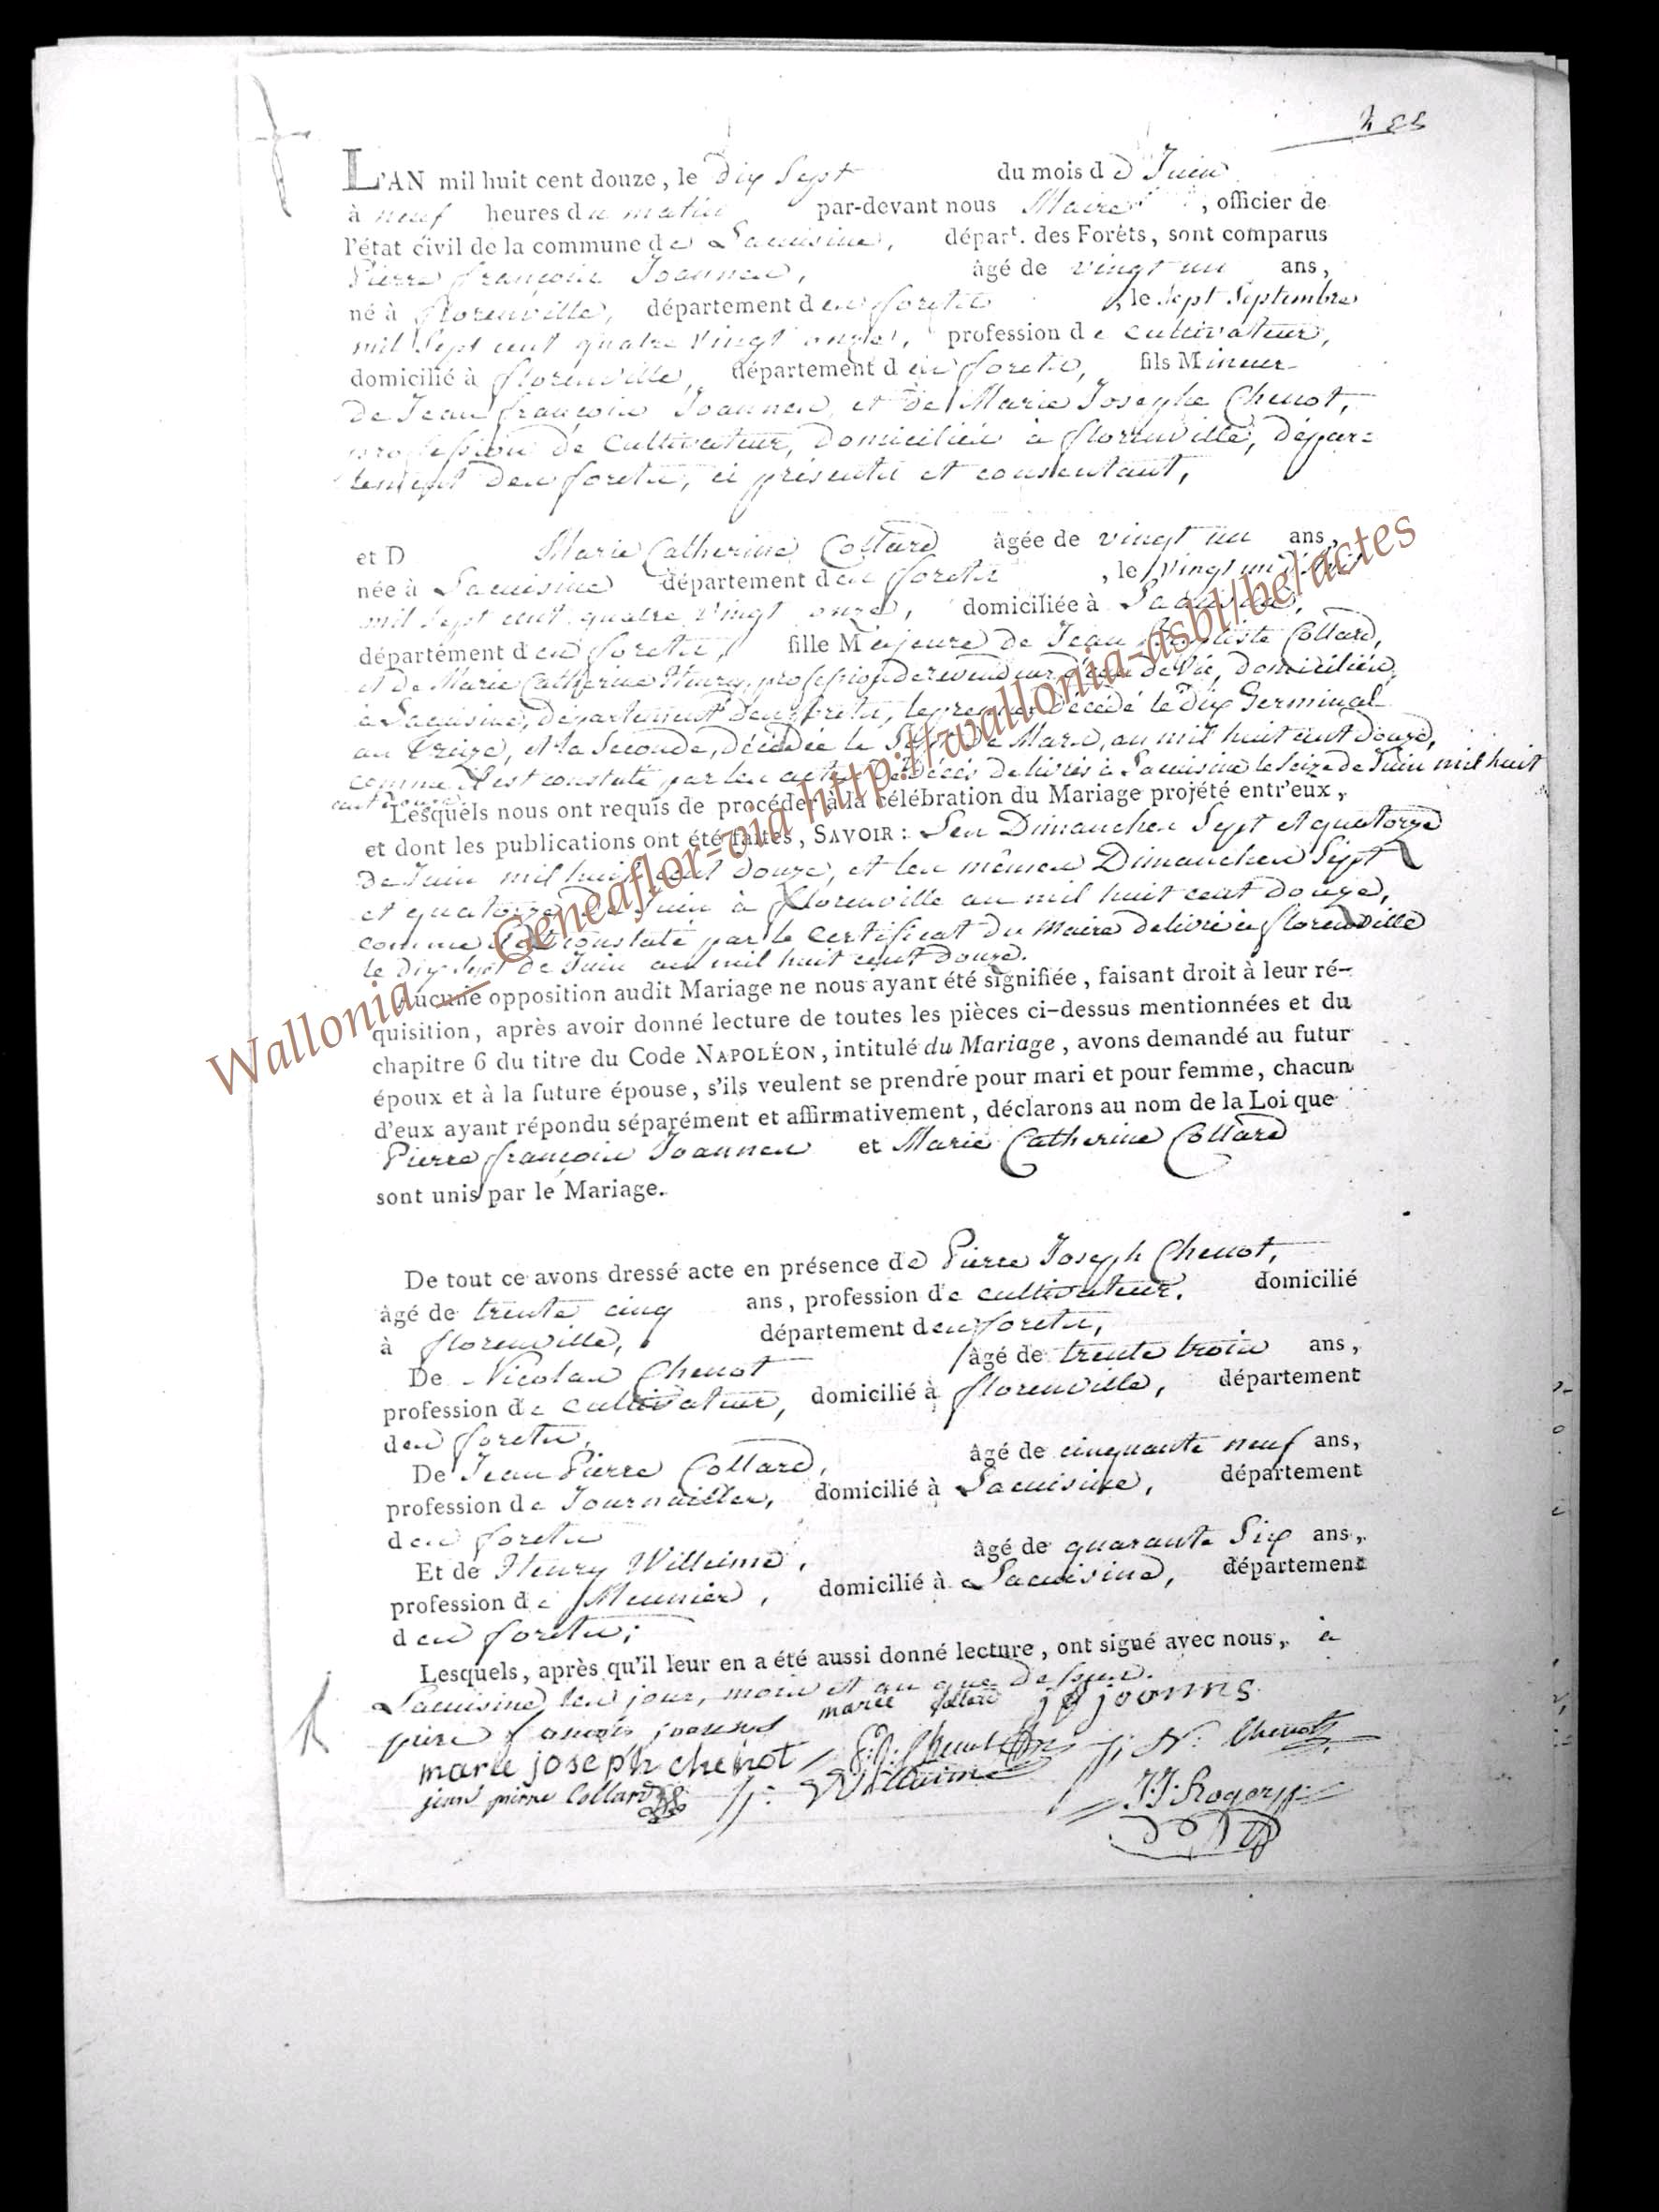 L'AN mil huit cent douze, le dix Sept du mois de Juin
à neuf heures du matin par-devant nous Maire, officier de
l'état civil de la commune de Lacuisine, départ. des Forêts, sont comparus
Pierre françois Joannes, âgé de vingt un ans,
né à florenville, département des foretes, le Sept Septembre
mil Sept cent quatre vingt onze, profession de cultivateur,
domicilié à florenville, département des foretes, fils Mineur
de Jean françois Joannes, et de Marie Josephe Chenot,
profession de Cultivateur, domiciliés à florenville, dépar=
tement des foretes, ci présents et consentant,
et D Marie Catherine Collard âgée de vingt un ans,
née à Lacuisine département des foretes, le vingt un
mil Sept cent quatre vingt onze, domiciliée à Lacuisine,
département des foretes, fille Majeure de Jean Baptiste Collard,
et de Marie Catherine Henry, profession de revendeur d'eau de Vie, domiciliés
à Lacuisine, département des foretes, le premier décédé le dix Germinal
an treize, et la Seconde, décédée le Sept de Mars, an mil huit cent douze,
comme il est constaté par les actes de Décès délivrés à Lacuisine le Seize de Juin mil huit
cent douze
Lesquels nous ont requis de procéder à la célébration du Mariage projété entr'eux,
et dont les publications ont été faites, SAVOIR : Les Dimanches Sept et quatorze
de Juin mil huit cent douze, et les mêmes Dimanches Sept
et quatorze de Juin à florenville an mil huit cent douze,
comme il est constaté par le certificat du Maire délivré à florenville
le Dix Sept de Juin an mil huit cent douze.
Aucune opposition audit Mariage ne nous ayant été signifiée, faisant droit à leur ré-
quisition, après avoir donné lecture de toutes les pièces ci-dessus mentionnées et du
chapitre 6 du titre du Code NAPOLÉON, intitulé du Mariage, avons demandé au futur
époux et à la future épouse, s'ils veulent se prendre pour mari et pour femme, chacun
d'eux ayant répondu séparément et affirmativement, déclarons au nom de la Loi que
Pierre françois Joannes et Marie Catherine Collard
sont unis par le Mariage.
De tout ce avons dressé acte en présence de Pierre Joseph Chenot,
âgé de trente cinq ans, profession de cultivateur, domicilié
à florenville, département des foretes,
De Nicolas Chenot âgé de trente trois ans,
profession de cultivateur, domicilié à florenville, département
des foretes,
De Jean Pierre Collard, âgé de cinquante neuf ans,
profession de Journaillier, domicilié à Lacuisine, département
des foretes
Et de Henry Willeime, âgé de quarante Six ans,
profession de Meunier, domicilié à Lacuisine, département
des foretes;
Lesquels, après qu'il leur en a été aussi donné lecture, ont signé avec nous, à
Lacuisine les jour, mois et an que dessus.
piere francois joannes marie collard j f joonnns
marie joseph chenot P. J. Chenot N. Chenot
jean pierre Collard H. Willeime J. J. Roger
Wallonia — Geneaflor-01a http://wallonia-asbl/be/actes